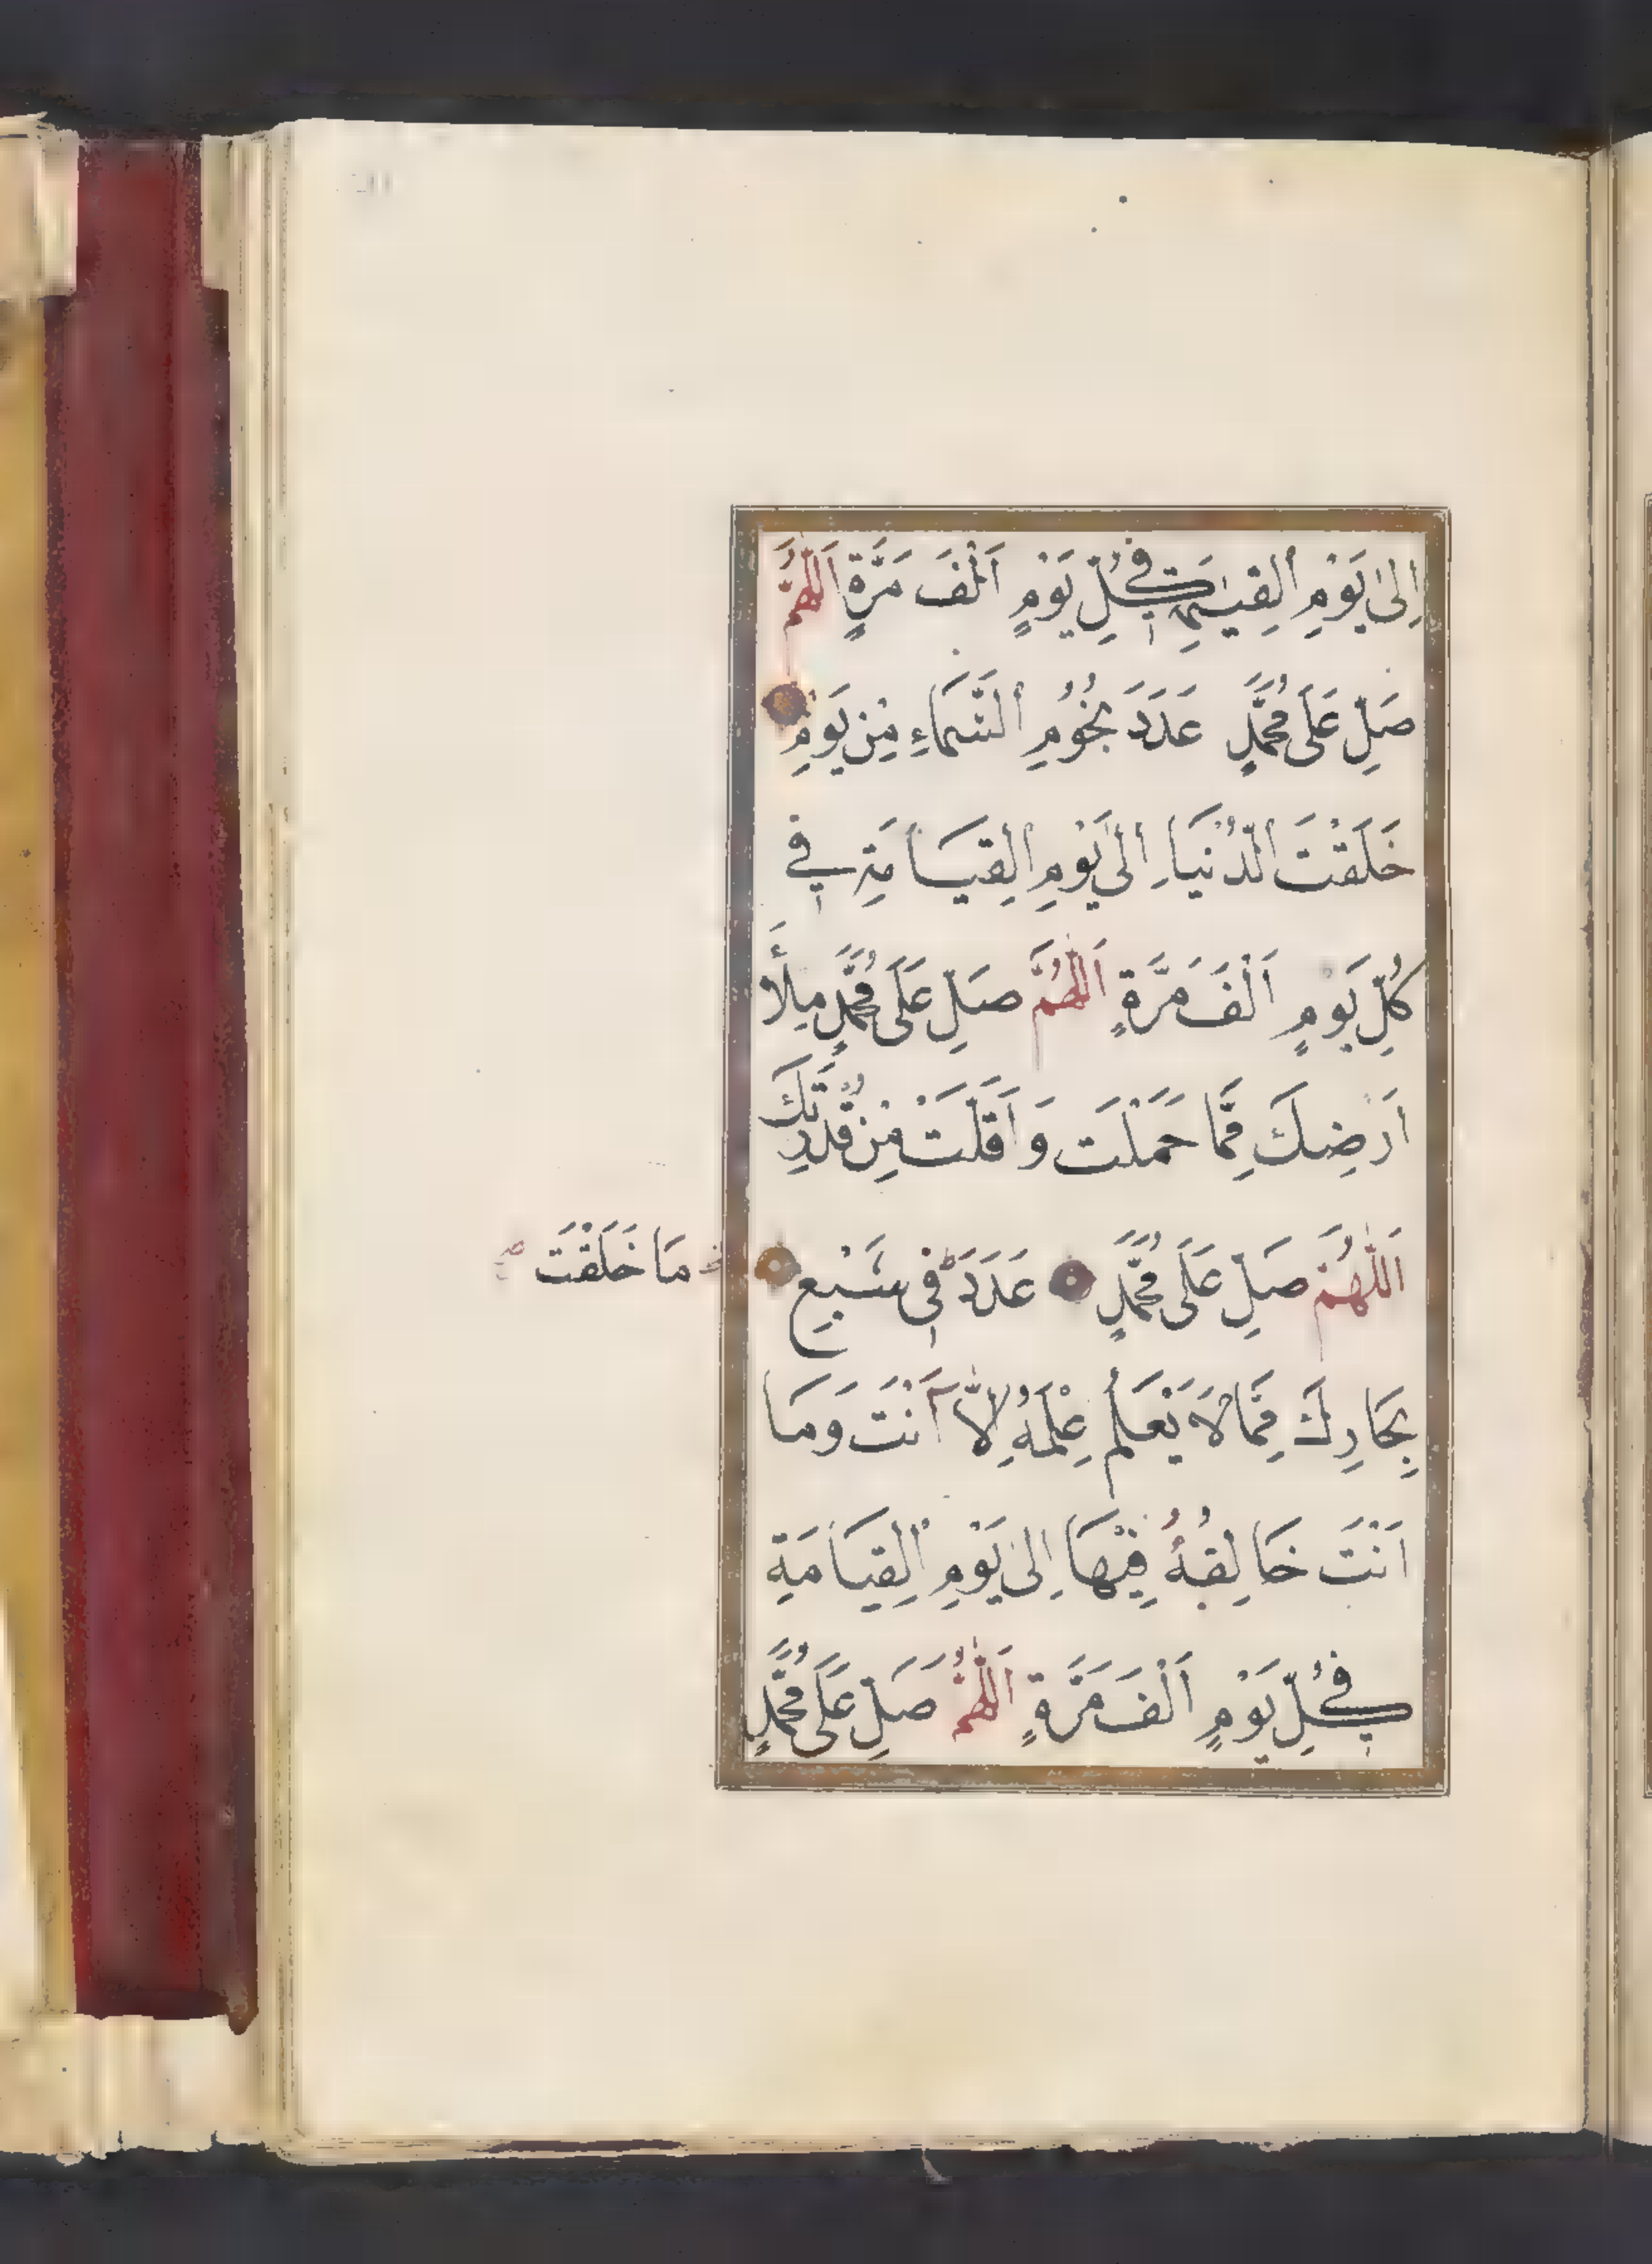 اِلىٰ يَوْمِ الْقِيٰمَةِ فِي كُلِّ يَوْمٍ اَلْفَ مَرَّةٍ اَللّٰهُمَّ
صَلِّ عَلَى مُحَمَّدٍ عَدَدَ نُجُومِ السَّمَاءِ مِنْ يَوْمِ
خَلَقْتَ الدُّنْيَا اِلىٰ يَوْمِ الْقِيَامَةِ فِي
كُلِّ يَوْمٍ اَلْفَ مَرَّةٍ اَللّٰهُمَّ صَلِّ عَلَى مُحَمَّدٍ مِلْأَ
اَرْضِكَ مِمَّا حَمَلَتْ وَاَقَلَّتْ مِنْ قُدْرَتِكَ
اَللّٰهُمَّ صَلِّ عَلَى مُحَمَّدٍ عَدَدَ فِي سَبْعِ
مَا خَلَقْتَ صح
بِحَارِكَ مِمَّا لَا يَعْلَمُ عِلْمَهُ اِلَّا اَنْتَ وَمَا
اَنْتَ خَالِقُهُ فِيْهَا اِلىٰ يَوْمِ الْقِيَامَةِ
فِي كُلِّ يَوْمٍ اَلْفَ مَرَّةٍ اَللّٰهُمَّ صَلِّ عَلَى مُحَمَّدٍ